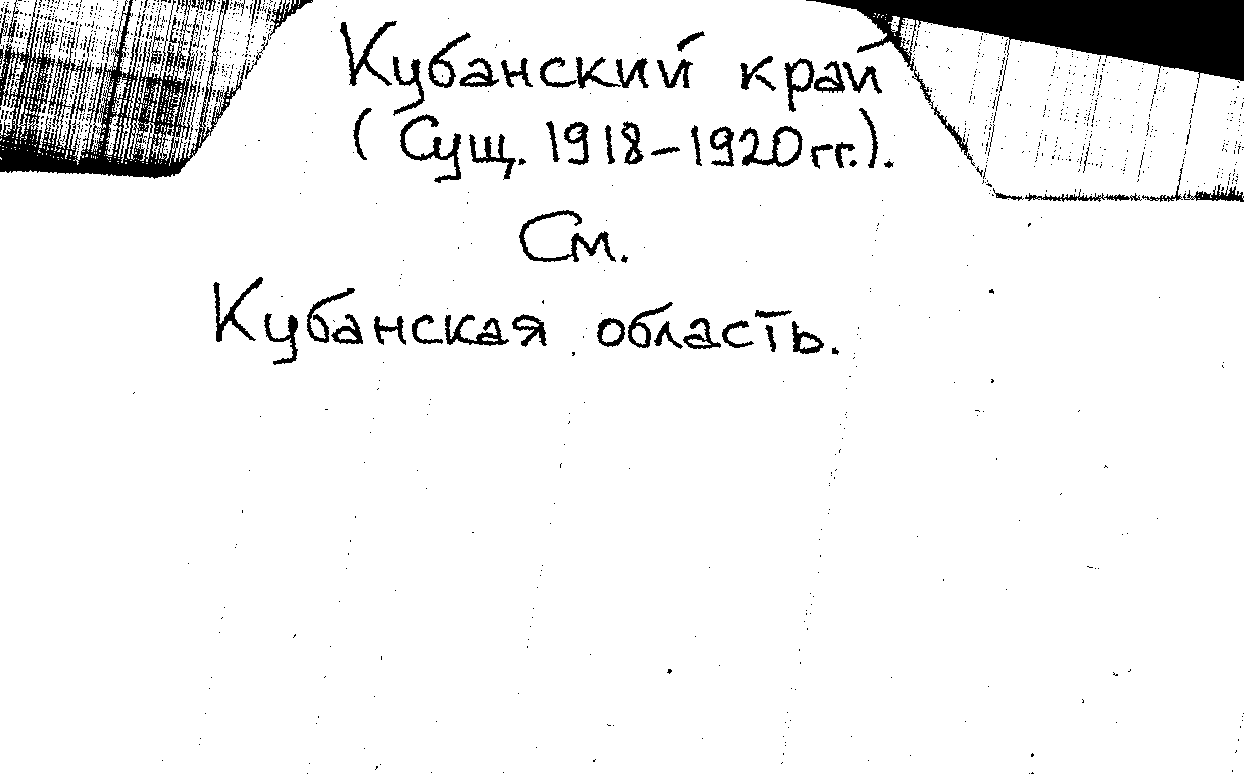 Кубанский край
(Сущ. 1918-1920 гг.).
См.
Кубанская область.